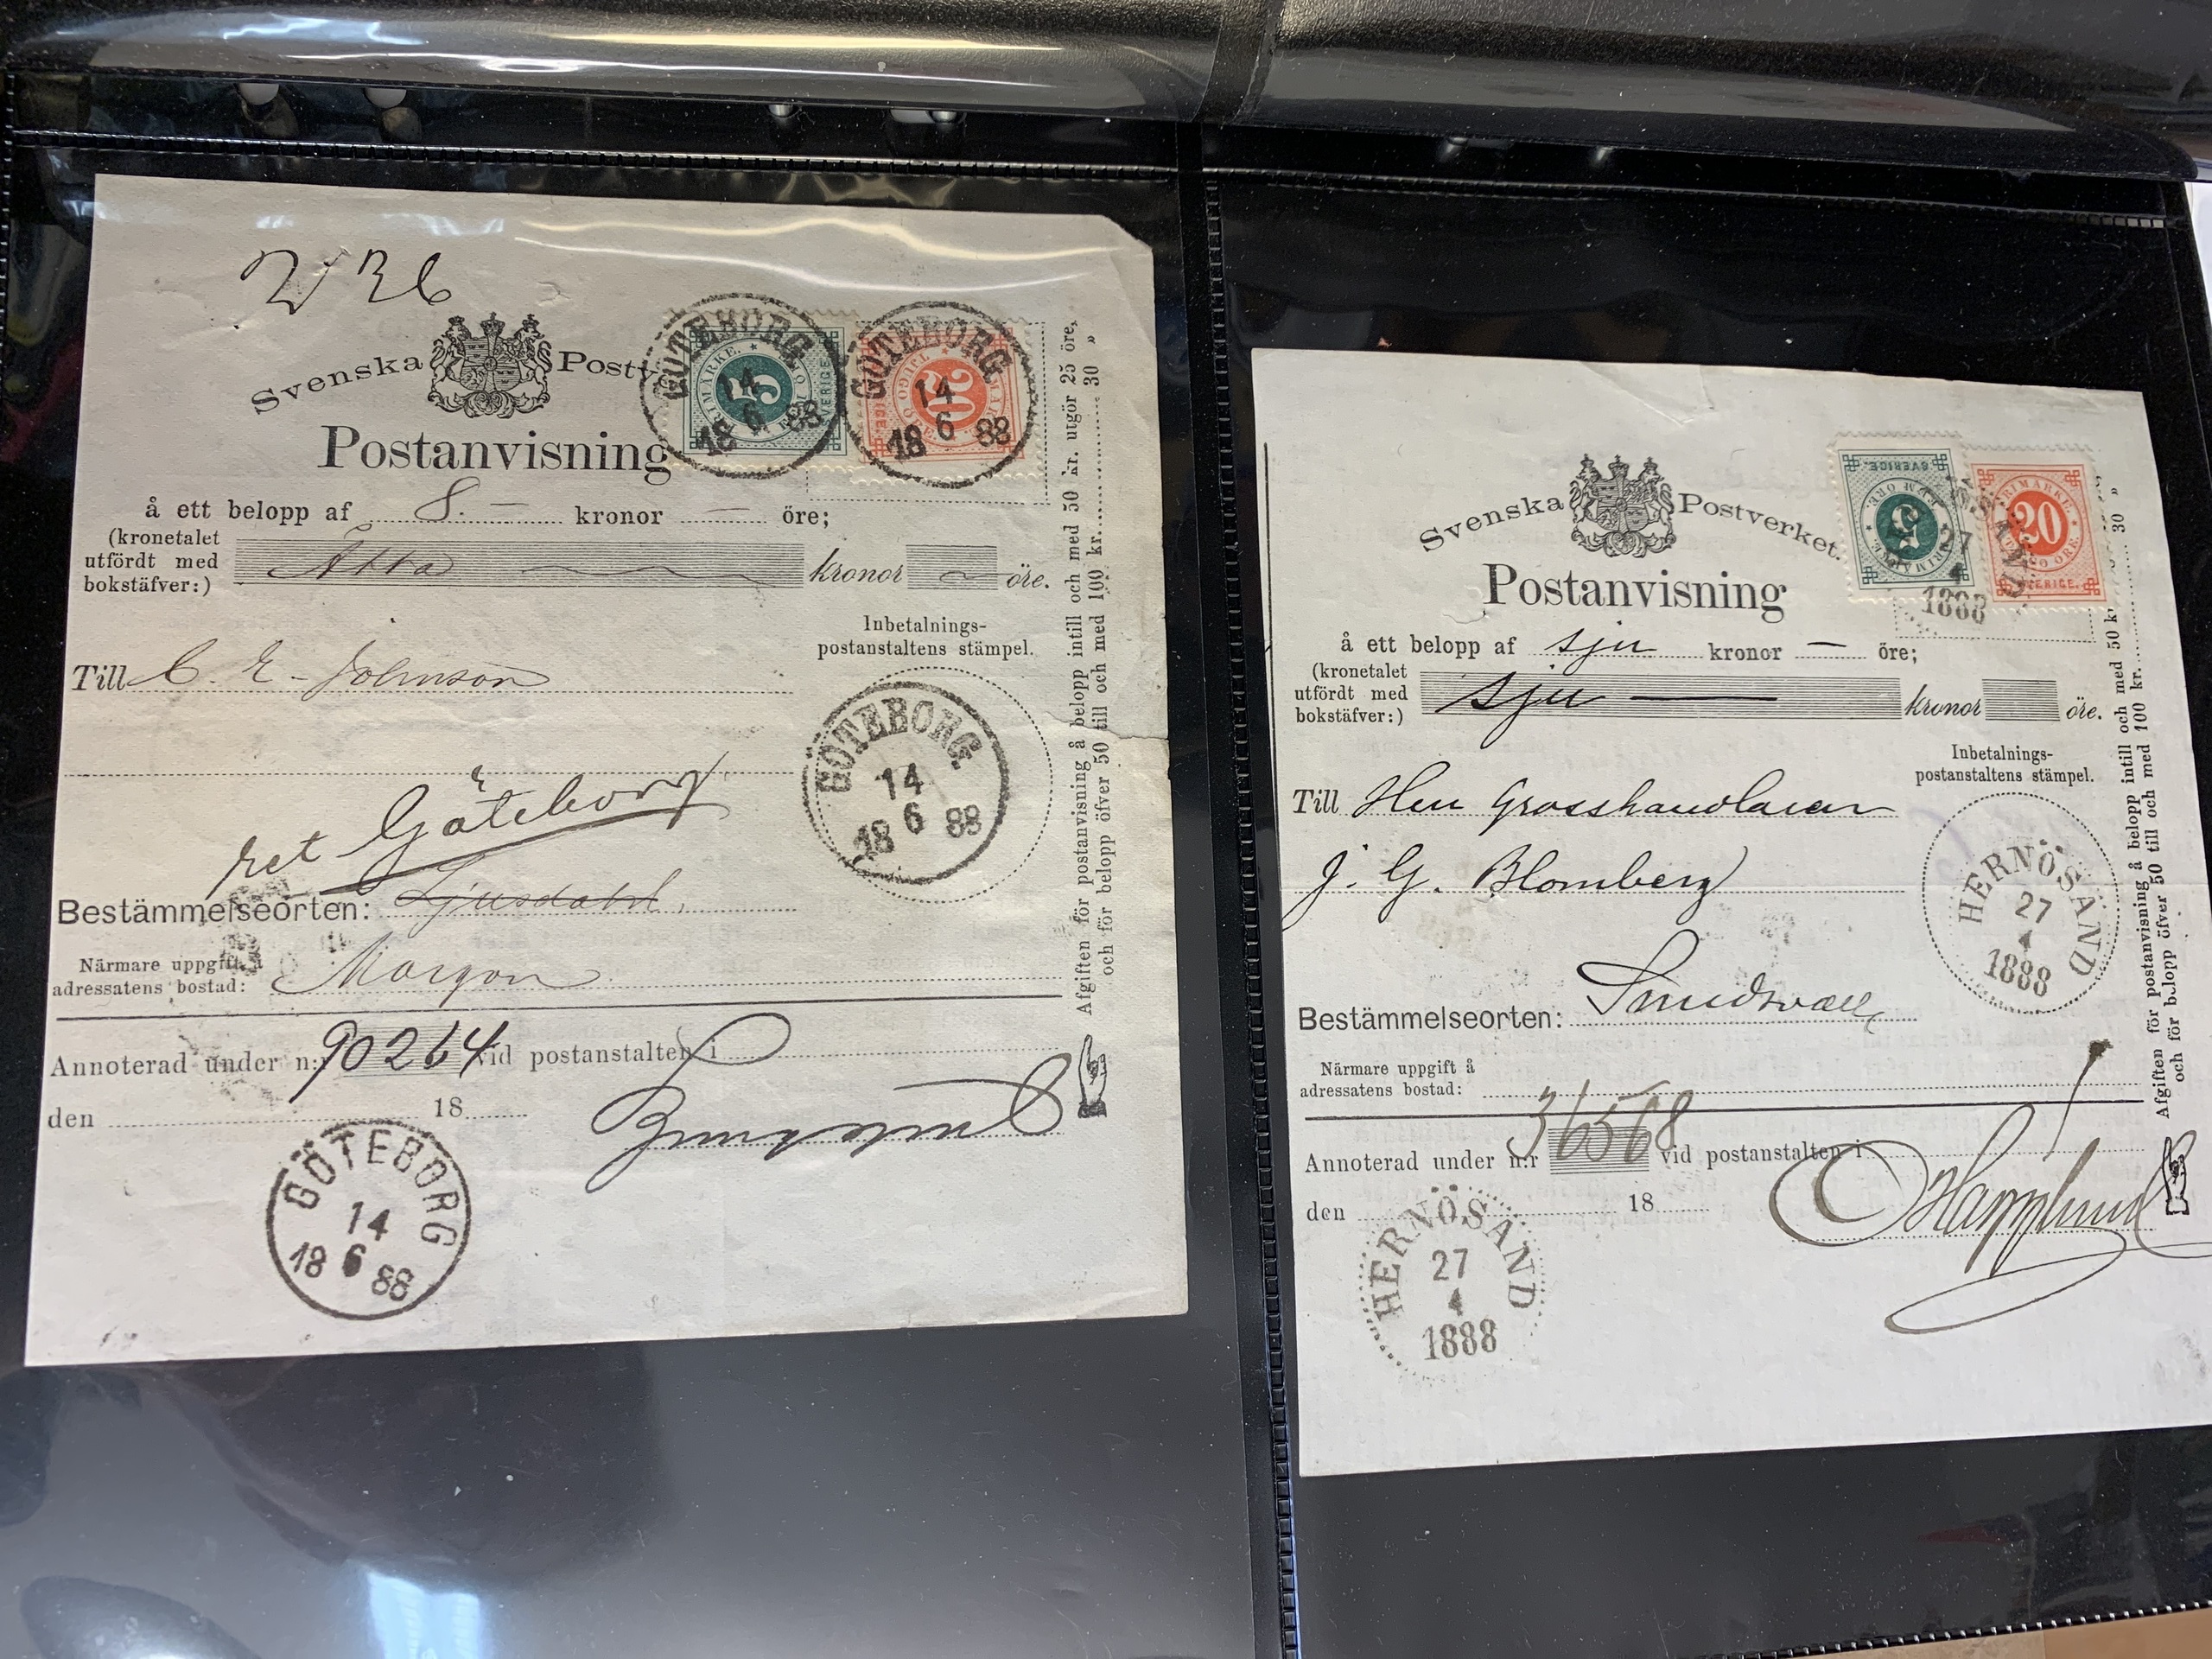 Svenska Postv
Postanvisning
GÖTEBORG
14
18 6 88
5
FRIMÄRKE.
SVERIGE
GÖTEBORG
14
18 6 88
20
å ett belopp af 8. — kronor — öre;
(kronetalet
utfördt med
bokstäfver:)
Åtta kronor öre.
Inbetalnings-
postanstaltens stämpel.
Till C. E. Johnson
GÖTEBORG.
14
18 6 88
ret Göteborg
Bestämmelseorten: Ljusdahl
Närmare uppgift å
adressatens bostad:
Annoterad under n:r 90264 vid postanstalten i
den 18
GÖTEBORG
14
18 6 88
Afgiften för postanvisning å belopp intill och med 50 kr. utgör 25 öre,
och för belopp öfver 50 till och med 100 kr. 30 »
Svenska Postverket.
Postanvisning
5
SVERIGE.
27
4
1888
20
FRIMÄRKE
SVERIGE.
å ett belopp af sju kronor — öre;
(kronetalet
utfördt med
bokstäfver:)
sju — kronor öre.
Inbetalnings-
postanstaltens stämpel.
Till Herr Grosshandlaren
J. G. Blomberg
HERNÖSAND
27
4
1888
Bestämmelseorten: Sundsvall
Närmare uppgift å
adressatens bostad:
Annoterad under n:r 36568 vid postanstalten i
den 18
HERNÖSAND
27
4
1888
Afgiften för postanvisning å belopp intill och med 50 k
och för belopp öfver 50 till och med 100 kr. 30 »